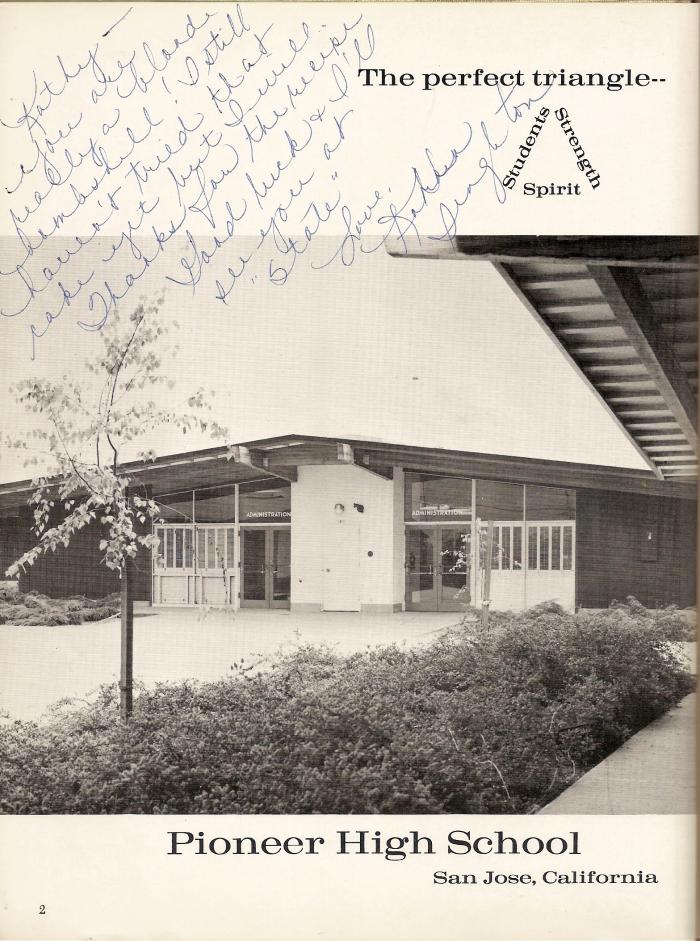 Kathy—
You are
really a blonde
bombshell! I still
haven't tried that
cake yet but I will.
Thanks for the recipe
Good luck & I'll
see you at
"State"
Love,
Singleton
The perfect triangle--
Students
Strength
Spirit
ADMINISTRATION
ADMINISTRATION
Pioneer High School
San Jose, California
2